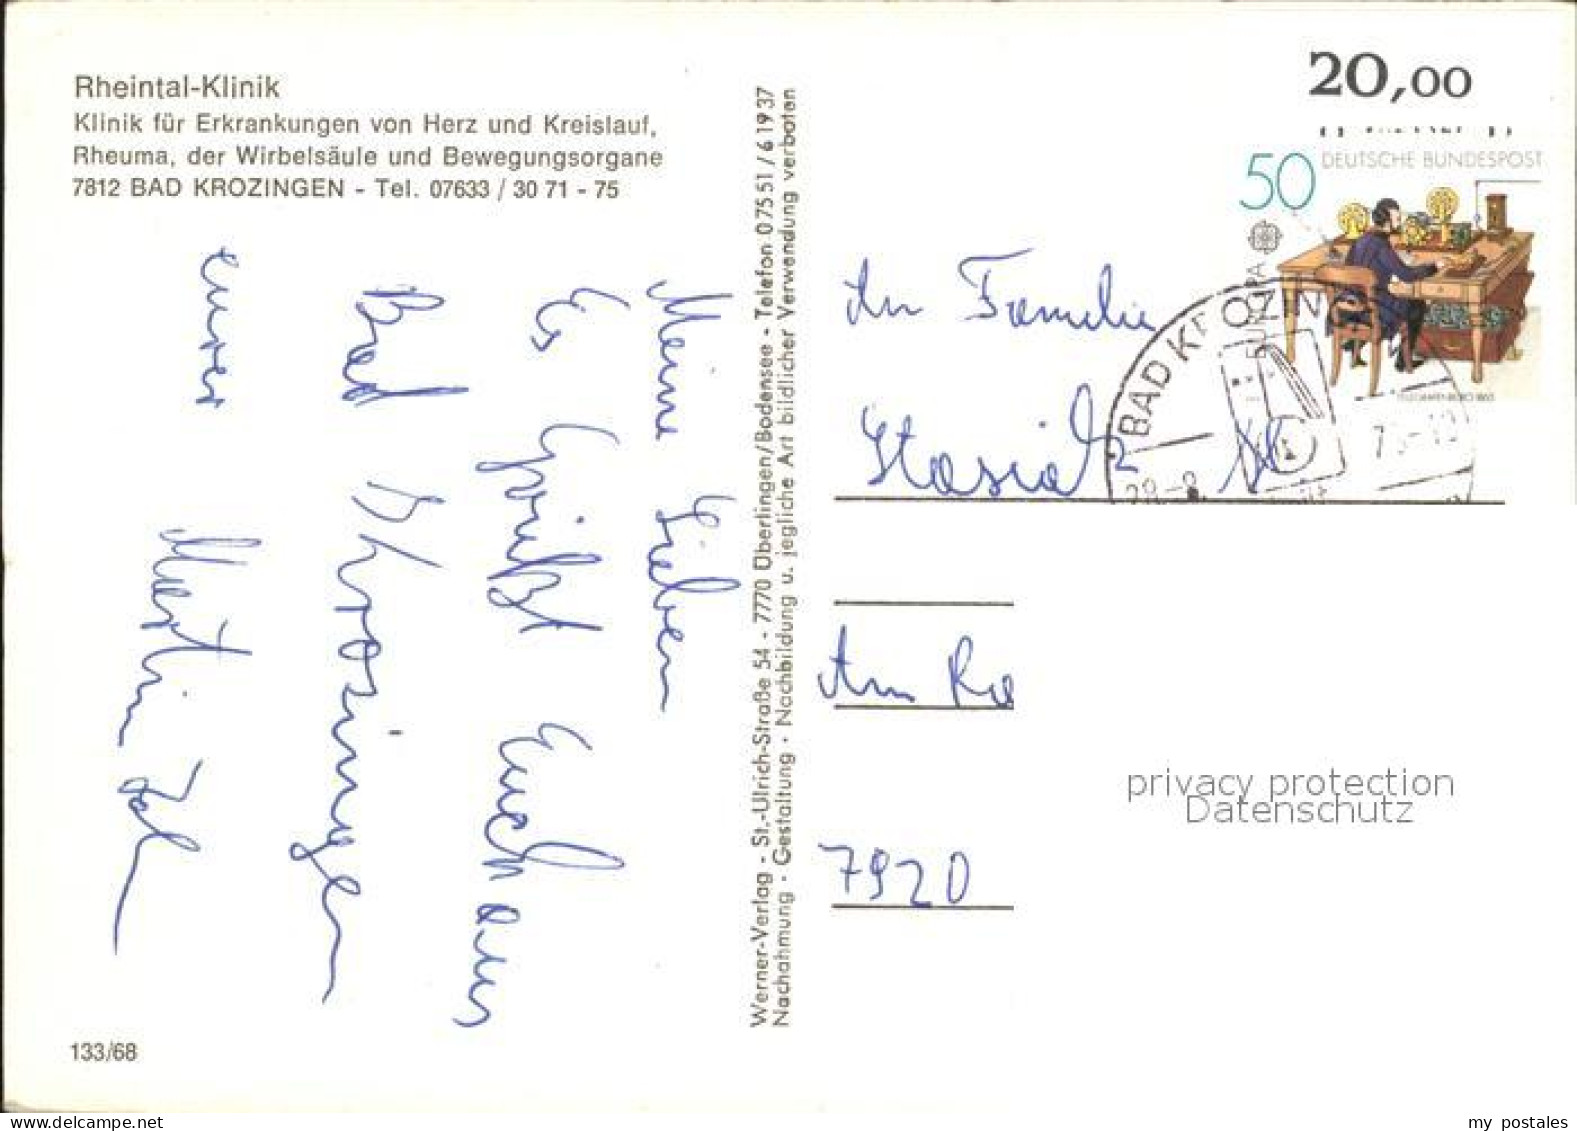 Rheintal-Klinik
Klinik für Erkrankungen von Herz und Kreislauf,
Rheuma, der Wirbelsäule und Bewegungsorgane
7812 BAD KROZINGEN - Tel. 07633 / 30 71 - 75
Meine Lieben
Es grüßt Euch aus
Bad Krozingen
euer
Martin
133/68
Werner-Verlag · St.-Ulrich-Straße 54 - 7770 Überlingen/Bodensee - Telefon 0 75 51 / 6 19 37
Nachahmung · Gestaltung · Nachbildung u. jegliche Art bildlicher Verwendung verboten
20,00
50 DEUTSCHE BUNDESPOST
EUROPA
BAD KROZINGEN
An Familie
Am
7920
privacy protection
Datenschutz
www.delcampe.net
my postales